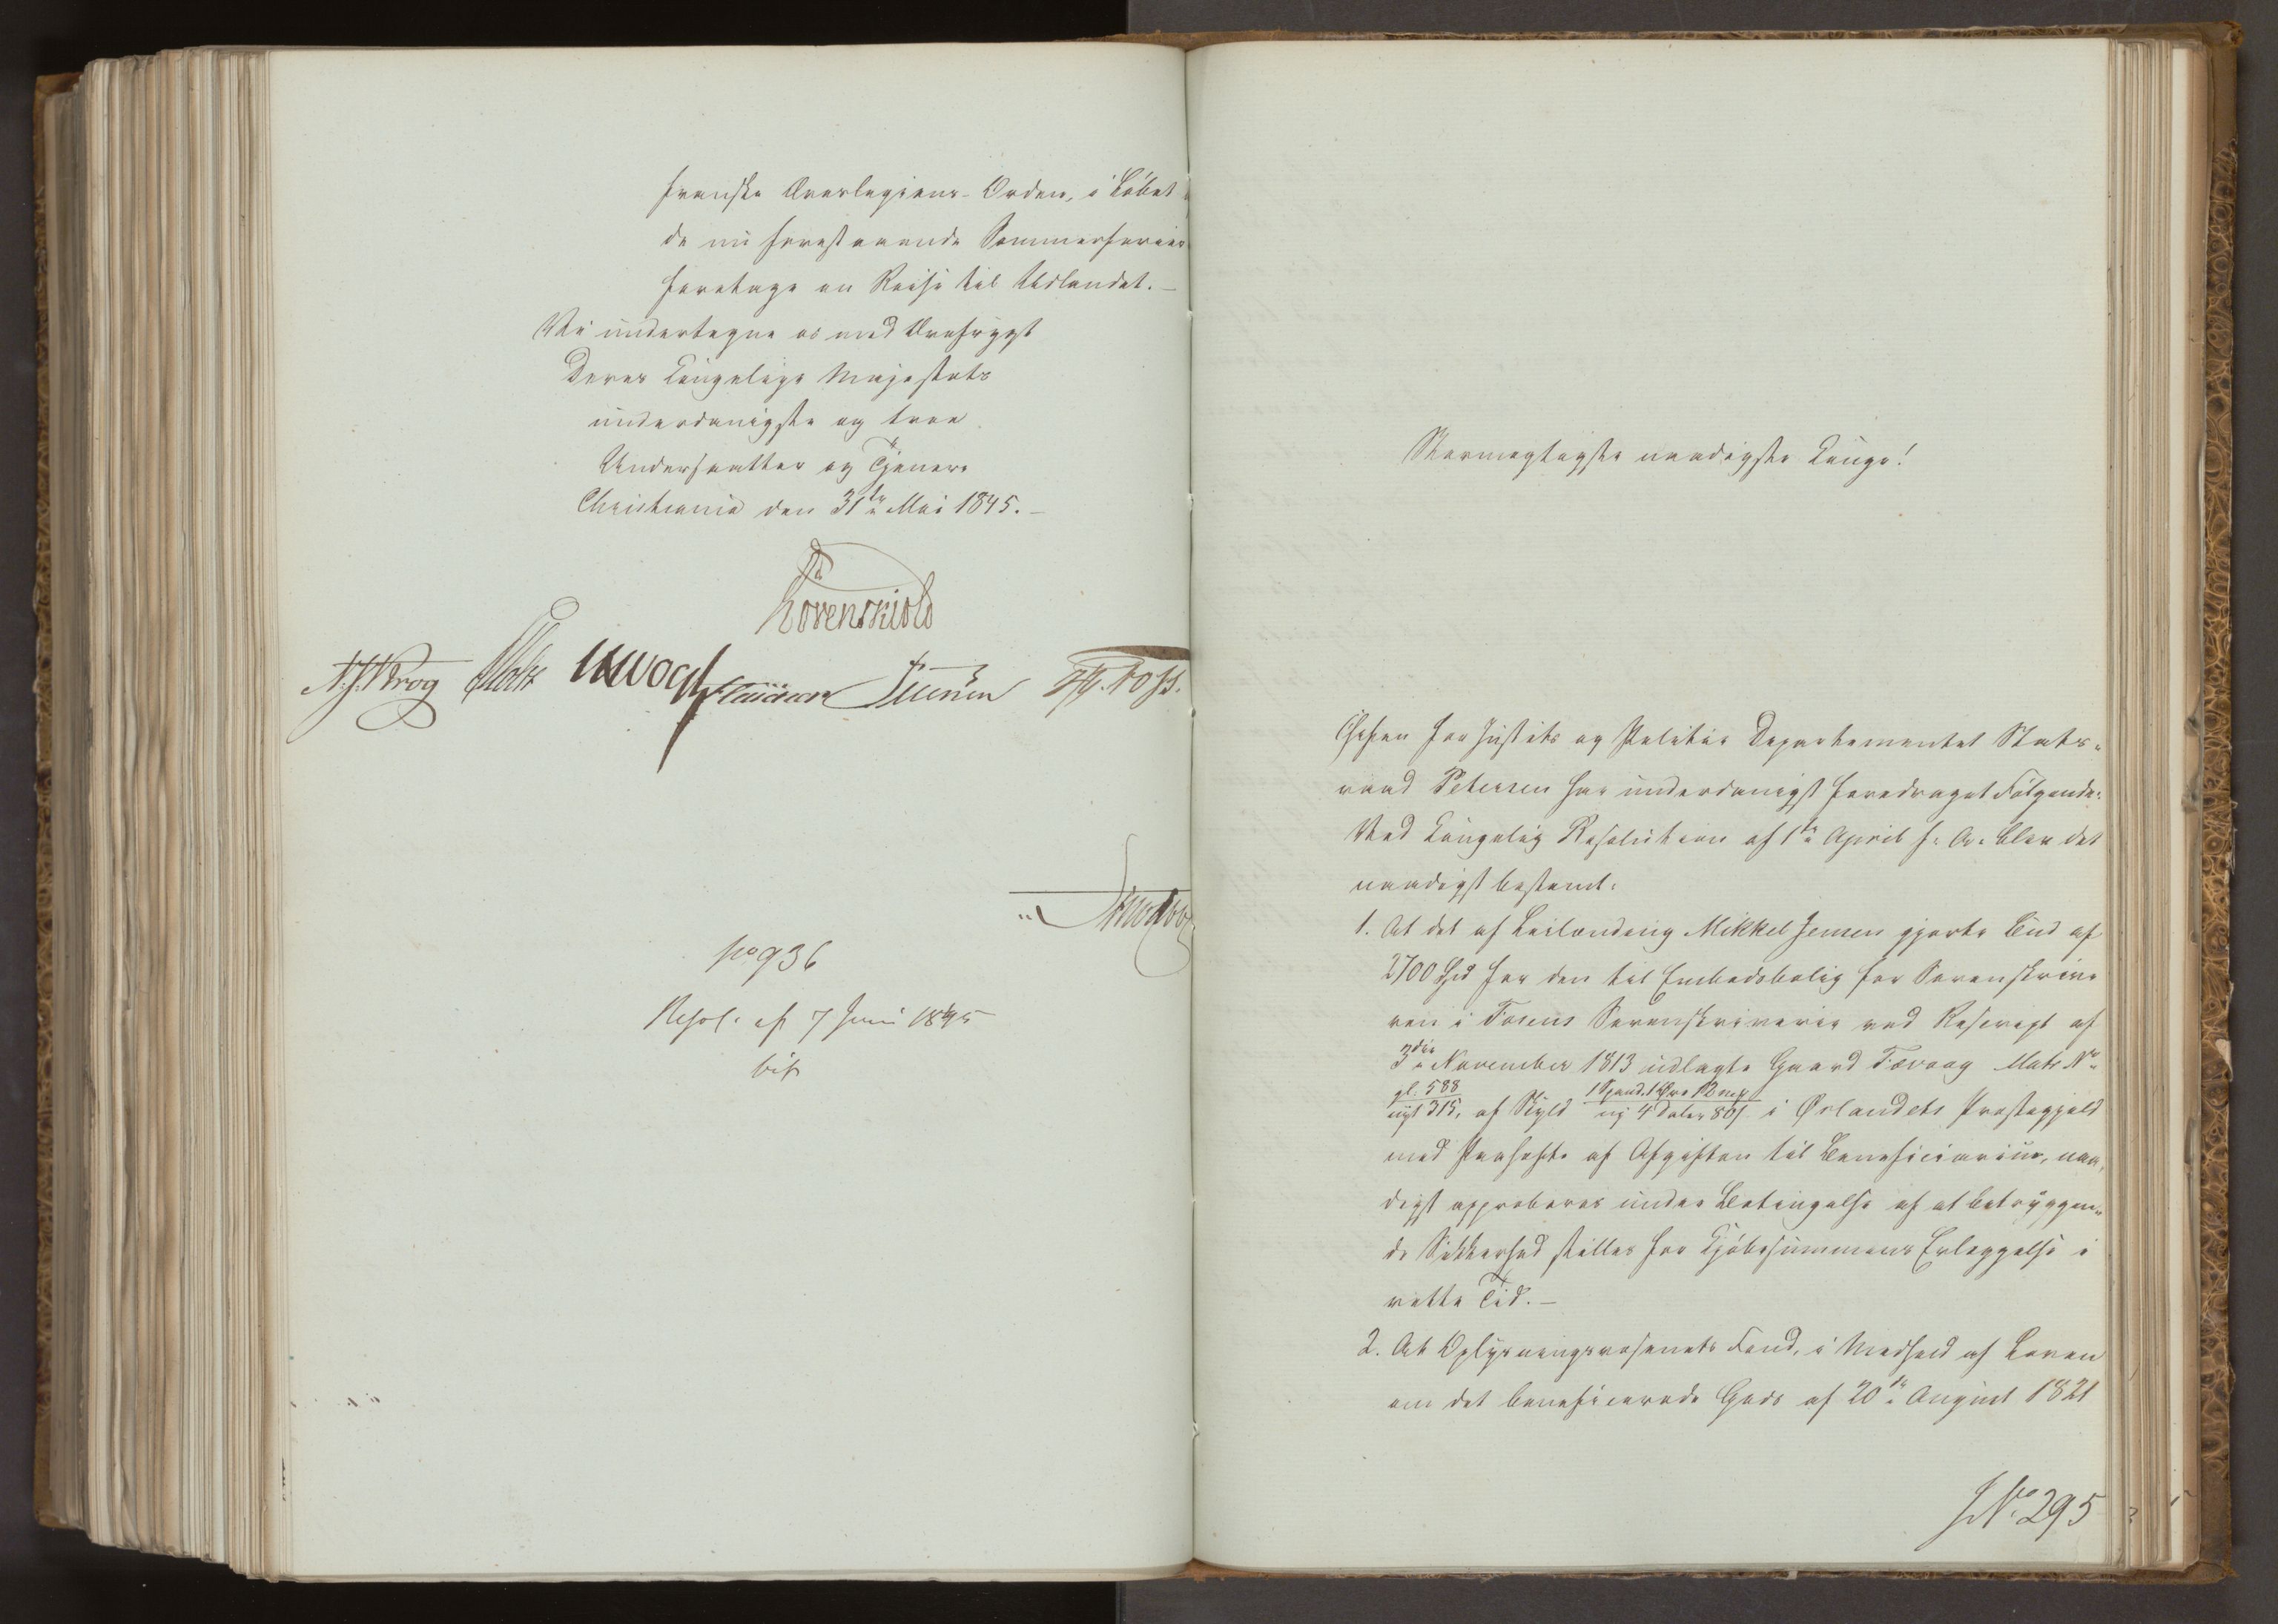 franske Æreslegions-Orden, i Løbet
de nu forestaaende Sommerferier
foretage en Reise til Udlandet.—
Vi undertegne os med Ærefrygt
Deres Kongelige Majestæts
underdanigste og troe
Undersaatter og Tjenere
Christiania den 31te Mai 1845.—
Løvenskiold
N. J. Krog Holst Vogt Petersen
No 936
Resol. af 7 Juni 1845
bif
Stormægtigste naadigste Konge!
Chefen for Justits og Politie Departementet Stats-
raad Petersen har underdanigst foredraget Følgende:
Ved Kongelig Resolution af 1te April f: A: blev det
naadigst bestemt:
1. At det af Leilænding Mikkel Jensen gjorte Bud af
2700 Spd for den til Embedsbolig for Sorenskrive
ren i Fosens Sorenskriverie ved Rescript af
3die November 1813 udlagte Gaard Fævaag Matr No
gl. 588 1 Spand 1 Øre 12 mrk
nyt 315, af Skyld ny 4 Daler 80 s i Ørlandets Præstegjeld
med Paahefte af Afgiften til Beneficiarius, naa-
digst approberes under Betingelse af at betryggen-
de Sikkerhed stilles for Kjøbesummens Erlæggelse i
rette Tid.—
2. At Oplysningsvæsenets Fond, i Medhold af Loven
om det beneficerede Gods af 20de August 1821
J No 295